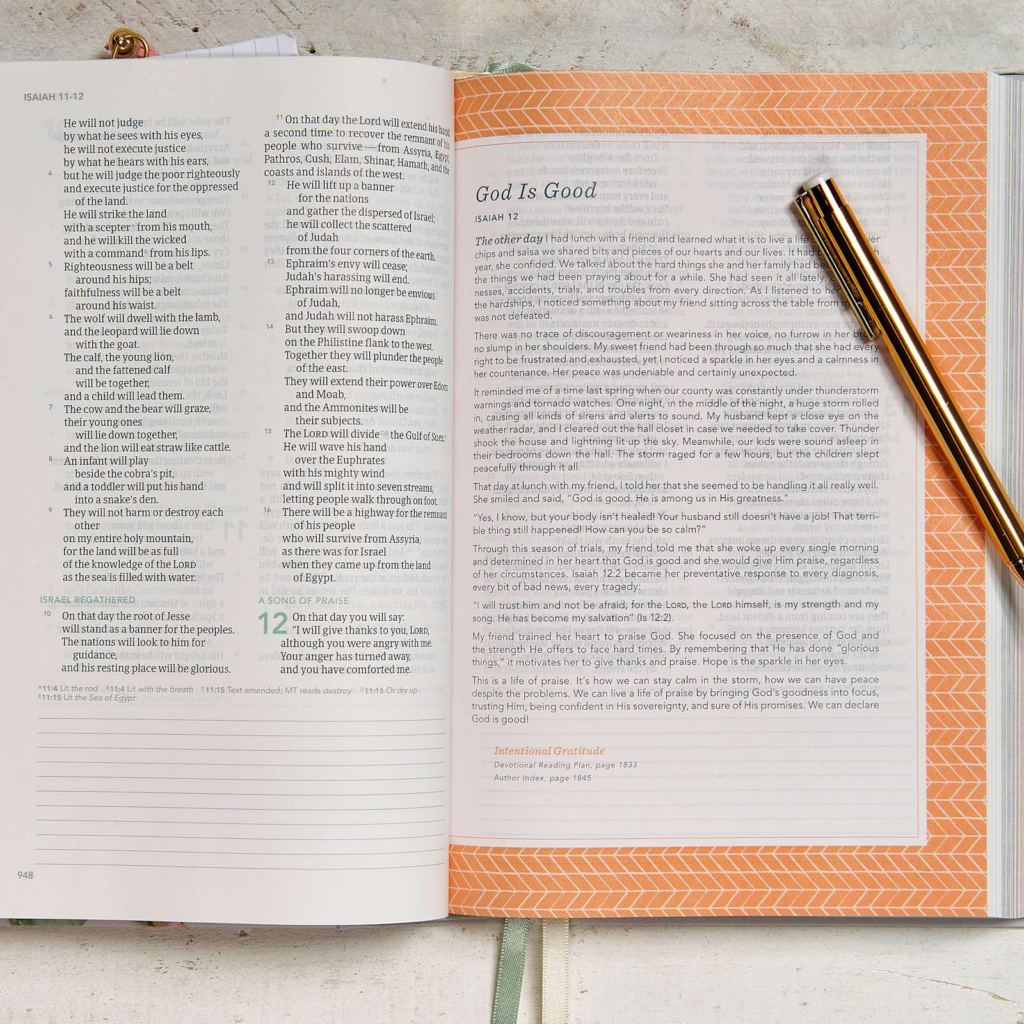 ISAIAH 11-12
He will not judge
by what he sees with his eyes,
he will not execute justice
by what he hears with his ears,
4 but he will judge the poor righteously
and execute justice for the oppressed
of the land.
He will strike the land
with a scepter from his mouth,
and he will kill the wicked
with a command from his lips.
5 Righteousness will be a belt
around his hips;
faithfulness will be a belt
around his waist.
6 The wolf will dwell with the lamb,
and the leopard will lie down
with the goat.
The calf, the young lion,
and the fattened calf
will be together,
and a child will lead them.
7 The cow and the bear will graze,
their young ones
will lie down together,
and the lion will eat straw like cattle.
8 An infant will play
beside the cobra's pit,
and a toddler will put his hand
into a snake's den.
9 They will not harm or destroy each
other
on my entire holy mountain,
for the land will be as full
of the knowledge of the LORD
as the sea is filled with water.
ISRAEL REGATHERED
10 On that day the root of Jesse
will stand as a banner for the peoples.
The nations will look to him for
guidance,
and his resting place will be glorious.
11 On that day the Lord will extend his hand
a second time to recover the remnant of his
people who survive — from Assyria, Egypt,
Pathros, Cush, Elam, Shinar, Hamath, and the
coasts and islands of the west.
12 He will lift up a banner
for the nations
and gather the dispersed of Israel;
he will collect the scattered
of Judah
from the four corners of the earth.
13 Ephraim's envy will cease;
Judah's harassing will end.
Ephraim will no longer be envious
of Judah,
and Judah will not harass Ephraim.
14 But they will swoop down
on the Philistine flank to the west.
Together they will plunder the people
of the east.
They will extend their power over Edom
and Moab,
and the Ammonites will be
their subjects.
15 The LORD will divide the Gulf of Suez.
He will wave his hand
over the Euphrates
with his mighty wind
and will split it into seven streams,
letting people walk through on foot.
16 There will be a highway for the remnant
of his people
who will survive from Assyria,
as there was for Israel
when they came up from the land
of Egypt.
A SONG OF PRAISE
12 On that day you will say:
"I will give thanks to you, LORD,
although you were angry with me.
Your anger has turned away,
and you have comforted me.
11:4 Lit the rod 11:4 Lit with the breath 11:15 Text emended; MT reads destroy 11:15 Or dry up
11:15 Lit the Sea of Egypt
948
God Is Good
ISAIAH 12
The other day I had lunch with a friend and learned what it is to live a life
chips and salsa we shared bits and pieces of our hearts and our lives. It had
year, she confided. We talked about the hard things she and her family had
the things we had been praying about for a while. She had seen it all lately
nesses, accidents, trials, and troubles from every direction. As I listened to her
the hardships, I noticed something about my friend sitting across the table from
was not defeated.
There was no trace of discouragement or weariness in her voice, no furrow in her
no slump in her shoulders. My sweet friend had been through so much that she had every
right to be frustrated and exhausted, yet I noticed a sparkle in her eyes and a calmness in
her countenance. Her peace was undeniable and certainly unexpected.
It reminded me of a time last spring when our county was constantly under thunderstorm
warnings and tornado watches. One night, in the middle of the night, a huge storm rolled
in, causing all kinds of sirens and alerts to sound. My husband kept a close eye on the
weather radar, and I cleared out the hall closet in case we needed to take cover. Thunder
shook the house and lightning lit up the sky. Meanwhile, our kids were sound asleep in
their bedrooms down the hall. The storm raged for a few hours, but the children slept
peacefully through it all.
That day at lunch with my friend, I told her that she seemed to be handling it all really well.
She smiled and said, "God is good. He is among us in His greatness."
"Yes, I know, but your body isn't healed! Your husband still doesn't have a job! That terri-
ble thing still happened! How can you be so calm?"
Through this season of trials, my friend told me that she woke up every single morning
and determined in her heart that God is good and she would give Him praise, regardless
of her circumstances. Isaiah 12:2 became her preventative response to every diagnosis,
every bit of bad news, every tragedy:
"I will trust him and not be afraid, for the LORD, the LORD himself, is my strength and my
song. He has become my salvation" (Is 12:2).
My friend trained her heart to praise God. She focused on the presence of God and
the strength He offers to face hard times. By remembering that He has done "glorious
things," it motivates her to give thanks and praise. Hope is the sparkle in her eyes.
This is a life of praise. It's how we can stay calm in the storm, how we can have peace
despite the problems. We can live a life of praise by bringing God's goodness into focus,
trusting Him, being confident in His sovereignty, and sure of His promises. We can declare
God is good!
Intentional Gratitude
Devotional Reading Plan, page 1833
Author Index, page 1845